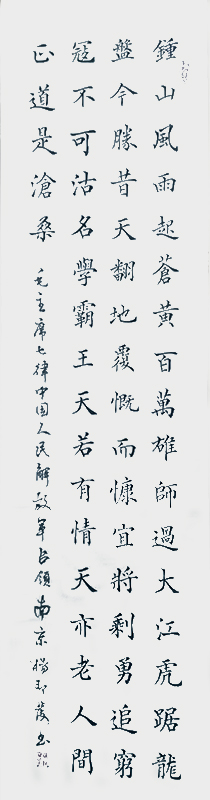 鍾山風雨起蒼黃百萬雄師過大江虎踞龍
盤今勝昔天翻地覆慨而慷宜將剩勇追窮
寇不可沽名學霸王天若有情天亦老人間
正道是滄桑 毛主席七律中国人民解放軍占領南京 書